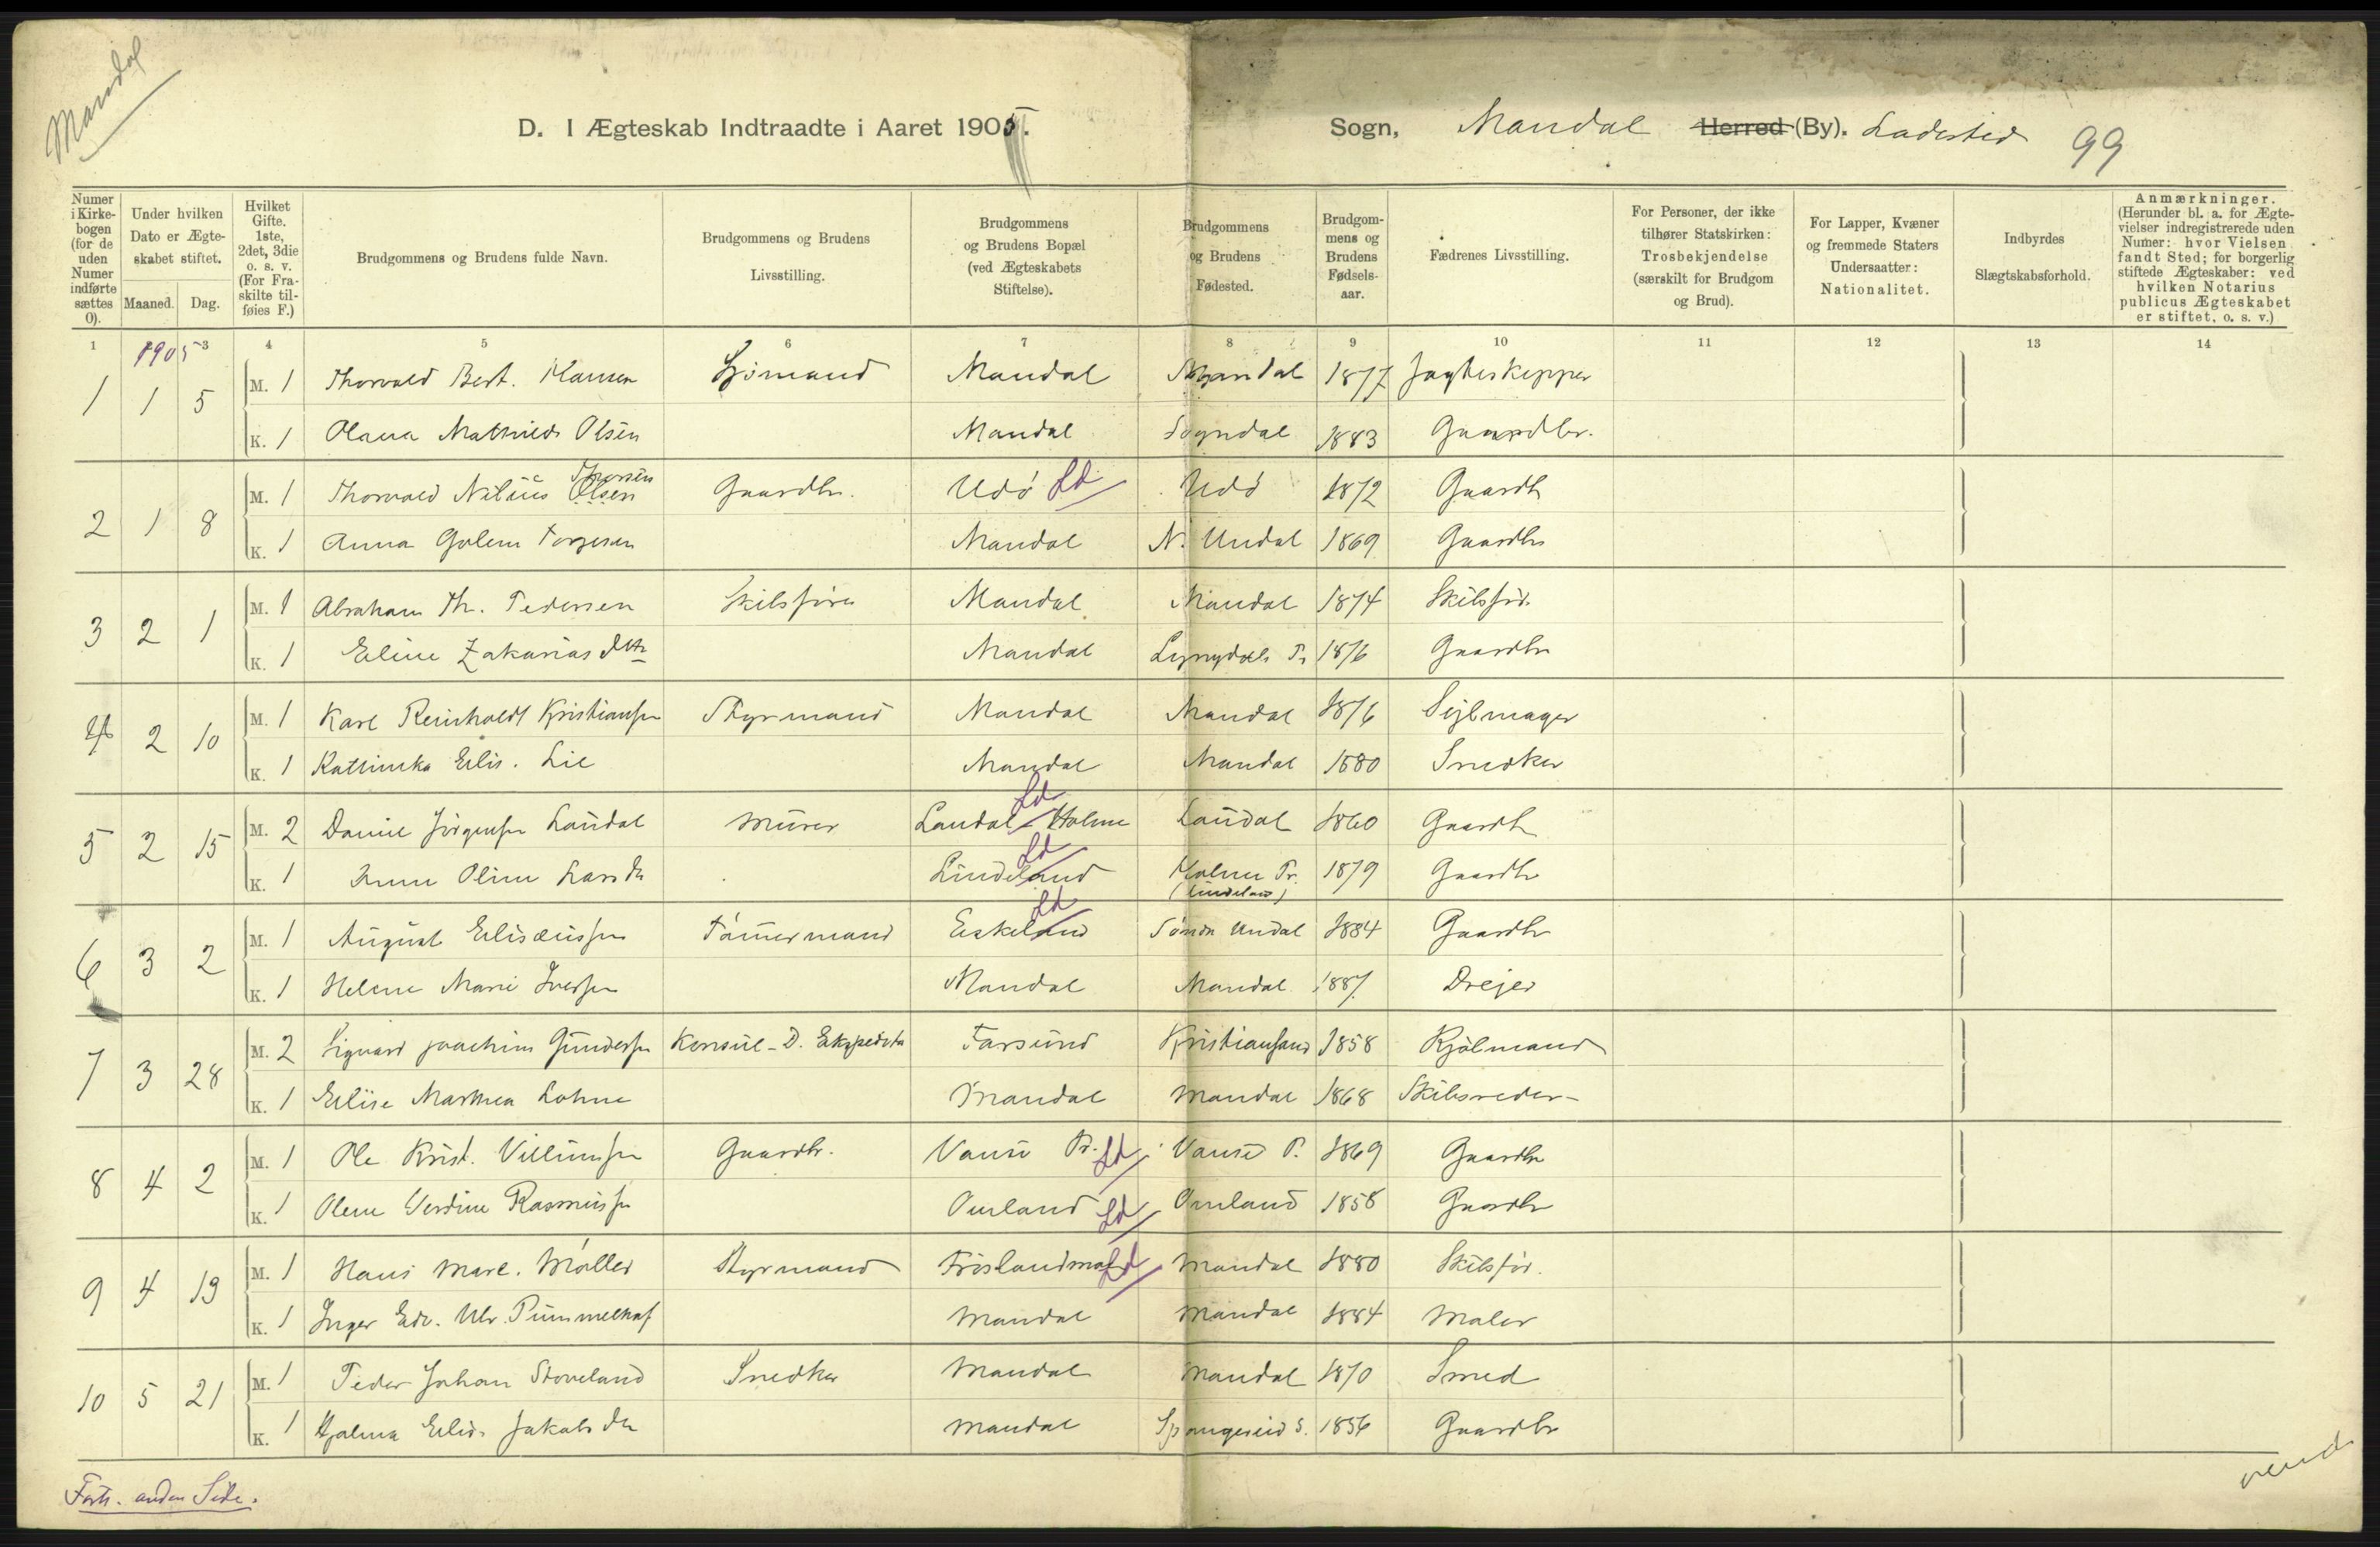 Mandal
D. I Ægteskab Indtraadte i Aaret 1905.
Sogn, Mandal Herred (By). Ladested 99
Numer i Kirkebogen (for de uden Numer indførte sættes 0).
Under hvilken Dato er Ægteskabet stiftet. Maaned. Dag.
Hvilket Gifte. 1ste, 2det, 3die o. s. v. (For Fraskilte tilføies F.)
Brudgommens og Brudens fulde Navn.
Brudgommens og Brudens Livsstilling.
Brudgommens og Brudens Bopæl (ved Ægteskabets Stiftelse).
Brudgommens og Brudens Fødested.
Brudgommens og Brudens Fødselsaar.
Fædrenes Livsstilling.
For Personer, der ikke tilhører Statskirken: Trosbekjendelse (særskilt for Brudgom og Brud).
For Lapper, Kvæner og fremmede Staters Undersaatter: Nationalitet.
Indbyrdes Slægtskabsforhold.
Anmærkninger. (Herunder bl. a. for Ægtevielser indregistrerede uden Numer: hvor Vielsen fandt Sted; for borgerlig stiftede Ægteskaber: ved hvilken Notarius publicus Ægteskabet er stiftet, o. s. v.)
1 1905 3 4 5 6 7 8 9 10 11 12 13 14
1 1 5 M. 1 Thorvald Bert. Hansen Sjømand Mandal Mandal 1877 Jagtskipper
K. 1 Olava Mathilde Olsen Mandal Sogndal 1883 Gaardbr.
2 1 8 M. 1 Thorvald Nilius Olsen Thorsen Gaardbr. Udø Ld Udø 1872 Gaardb
K. 1 Anna Golene Torgersen Mandal N. Undal 1869 Gaardbr
3 2 1 M. 1 Abraham Th. Pedersen Skibsfører Mandal Mandal 1874 Skibsfør.
K. 1 Eline Zakariasdtr Mandal Lyngdals Pr 1876 Gaardbr
4 2 10 M. 1 Karl Reinholdt Kristiansen Styrmand Mandal Mandal 1876 Sejlmager
K. 1 Kathinka Elis. Lie Mandal Mandal 1880 Snedker
5 2 15 M. 2 Daniel Jørgensen Laudal Murer Laudal Holme Ld Laudal 1860 Gaardb
K. 1 Oline Larsdtr Lindeland Ld Holme Pr. (Lindeland) 1879 Gaardbr
6 3 2 M. 1 August Elisæussen Tømmermand Eskeland Ld Søndr Undal 1884 Gaardbr
K. 1 Helene Marie Iversen Mandal Mandal 1887 Drejer
7 3 28 M. 2 Sigvard Joachim Gundersen Konsul - D. Ekspeditør Farsund Kristiansand 1858 Kjølmand
K. 1 Elise Marthea Lohne Mandal Mandal 1868 Skibsreder
8 4 2 M. 1 Ole Krist. Villumsen Gaardbr. Vanse Pr. Ld Vanse P. 1869 Gaardbr
K. 1 Olene Verdine Rasmussen Omland Ld Omland 1858 Gaardbr
9 4 19 M. 1 Hans Marl. Møller Styrmand Ld Mandal 1880 Skibsfør.
K. 1 Inger Edv. Ulr. Mandal Mandal 1884 Maler
10 5 21 M. 1 Peder Johan Stoveland Snedker Mandal Mandal 1870 Smed
K. 1 Hjalma Elis. Jakobsdtr Mandal Spangereid S. 1856 Gaardbr
Forts. anden Side.
vend